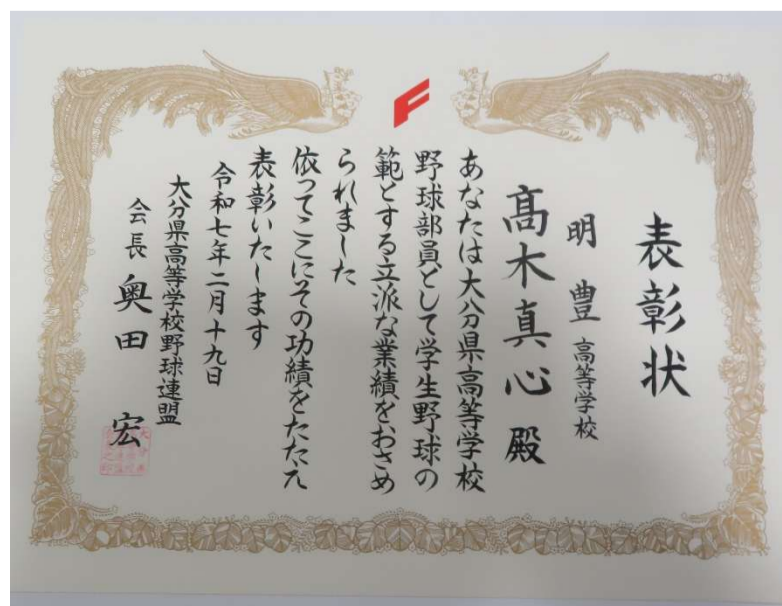 表彰状
明豊高等学校
髙木真心殿
あなたは大分県高等学校
野球部員として学生野球の
範とする立派な業績をおさめ
られました
依ってここにその功績をたたえ
表彰いたします
令和七年二月十九日
大分県高等学校野球連盟
会長 奥田宏